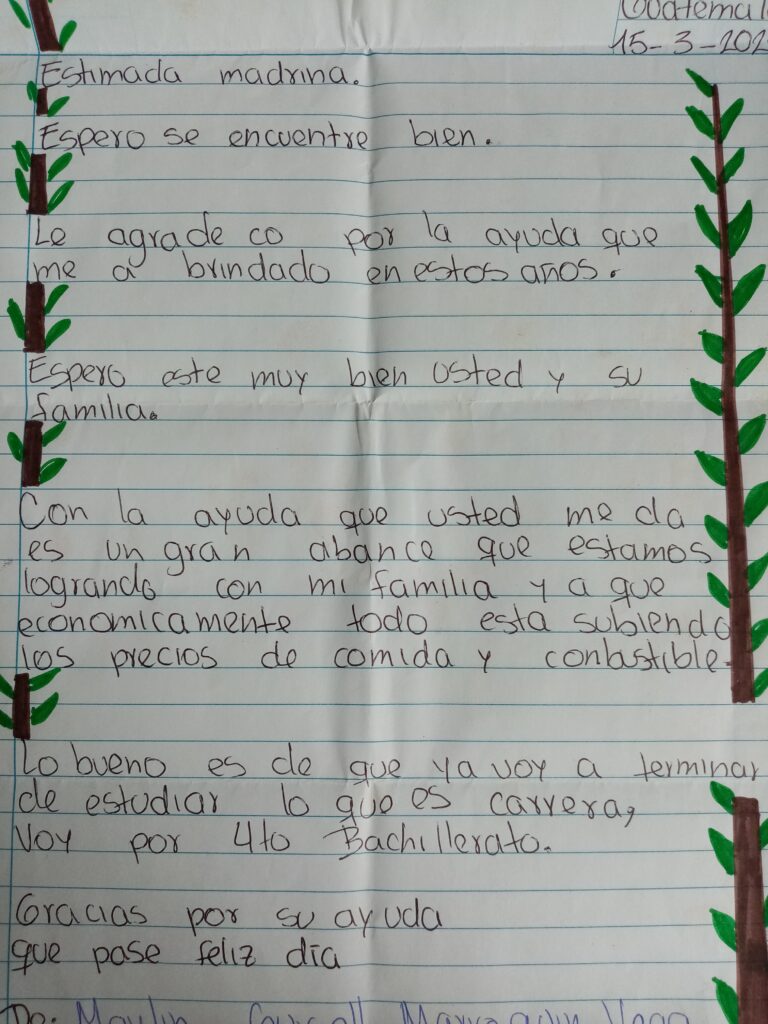 Guatemal
15-3-202
Estimada madrina.
Espero se encuentre bien.
Le agradeco por la ayuda que
me a brindado en estos años.
Espero este muy bien usted y su
familia.
Con la ayuda que usted me da
es un gran abance que estamos
logrando con mi familia y a que
economicamente todo esta subiendo
los precios de comida y conbustible.
Lo bueno es de que ya voy a terminar
de estudiar lo que es carrera,
voy por 4to Bachillerato.
Gracias por su ayuda
que pase feliz día
De: